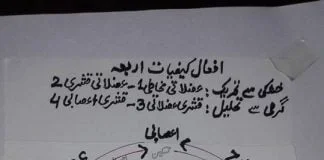 افعال کیفیات اربعہ
خشکی سے تحریک: عضلاتی مخاطی 1 - عضلاتی قشری 2
گرمی سے تحلیل: قشری عضلاتی 3 - قشری اعصابی 4
اعصابی